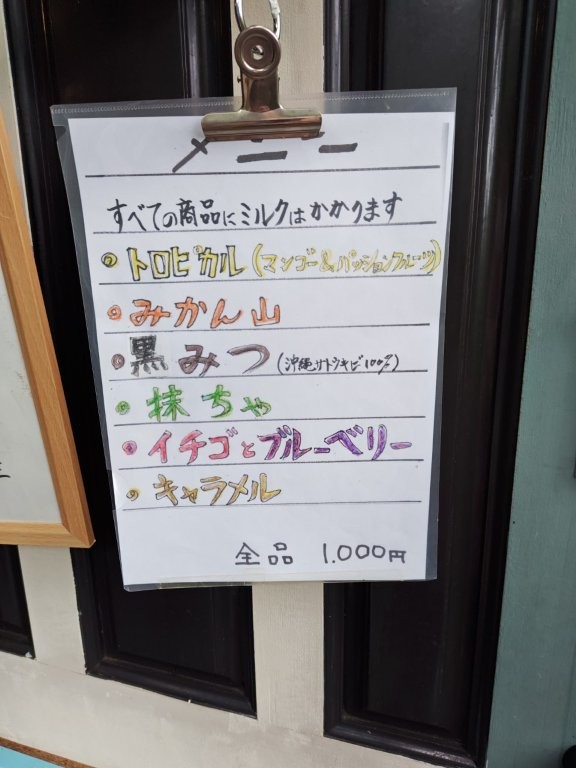 メニュー
すべての商品にミルクはかかります
トロピカル(マンゴー&パッションフルーツ)
みかん山
黒みつ(沖縄サトウキビ100%)
抹ちゃ
イチゴとブルーベリー
キャラメル
全品 1.000円